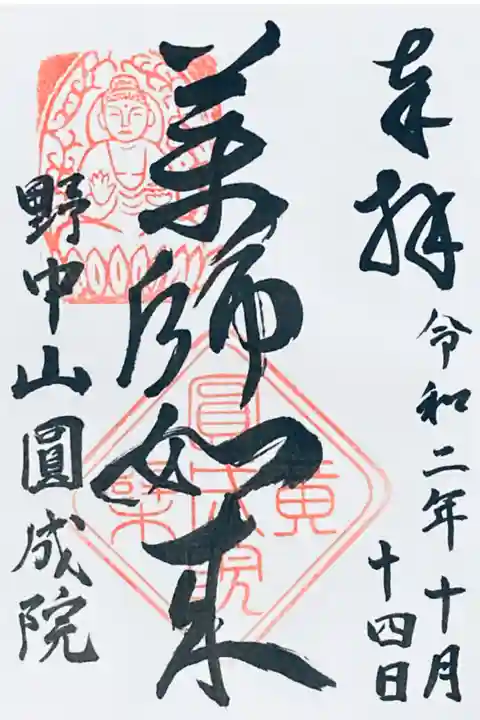 奉拝
令和二年十月
十四日
薬師如来
野中山圓成院
黄
檗
圓成院